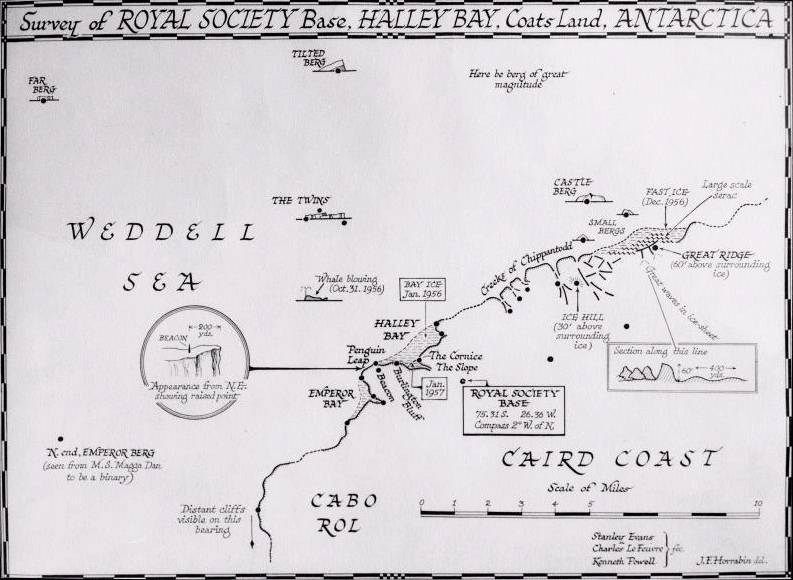 Survey of ROYAL SOCIETY Base, HALLEY BAY, Coats Land, ANTARCTICA
TILTED
BERG
Here be berg of great
magnitude
FAR
BERG
CASTLE
BERG
FAST ICE
(Dec. 1956)
Large scale
serac
THE TWINS
SMALL
BERGS
WEDDELL
SEA
GREAT RIDGE
(60' above surrounding
ice)
Creeks of Chippantodd
Great waves in ice-sheet
Whale blowing
(Oct. 31. 1956)
BAY ICE
Jan. 1956
ICE HILL
(30' above
surrounding
ice)
200
yds.
BEACON
Appearance from N.E.
showing raised point
HALLEY
BAY
Penguin
Leap
The Cornice
The Slope
Beacon
Burlington
Bluff
Jan.
1957
Section along this line
60'
400
yds.
EMPEROR
BAY
ROYAL SOCIETY
BASE
75.31 S. 26.36 W.
Compass 2° W. of N.
N. end, EMPEROR BERG
(seen from M.S. Magga Dan
to be a binary)
CAIRD COAST
Scale of Miles
0 1 2 3 4 5 10
CABO
ROL
Distant cliffs
visible on this
bearing
Stanley Evans
Charles Le Feuvre
Kenneth Powell
fec.
J.F. Horrabin del.